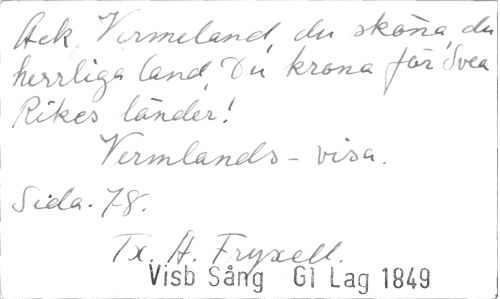 Ack, Vermeland, du sköna, du
herrliga land, Du krona för Svea
Rikes länder!
Vermlands-visa.
Sida. 78.
Tx. A. Fryxell.
Visb Sång Gl Lag 1849